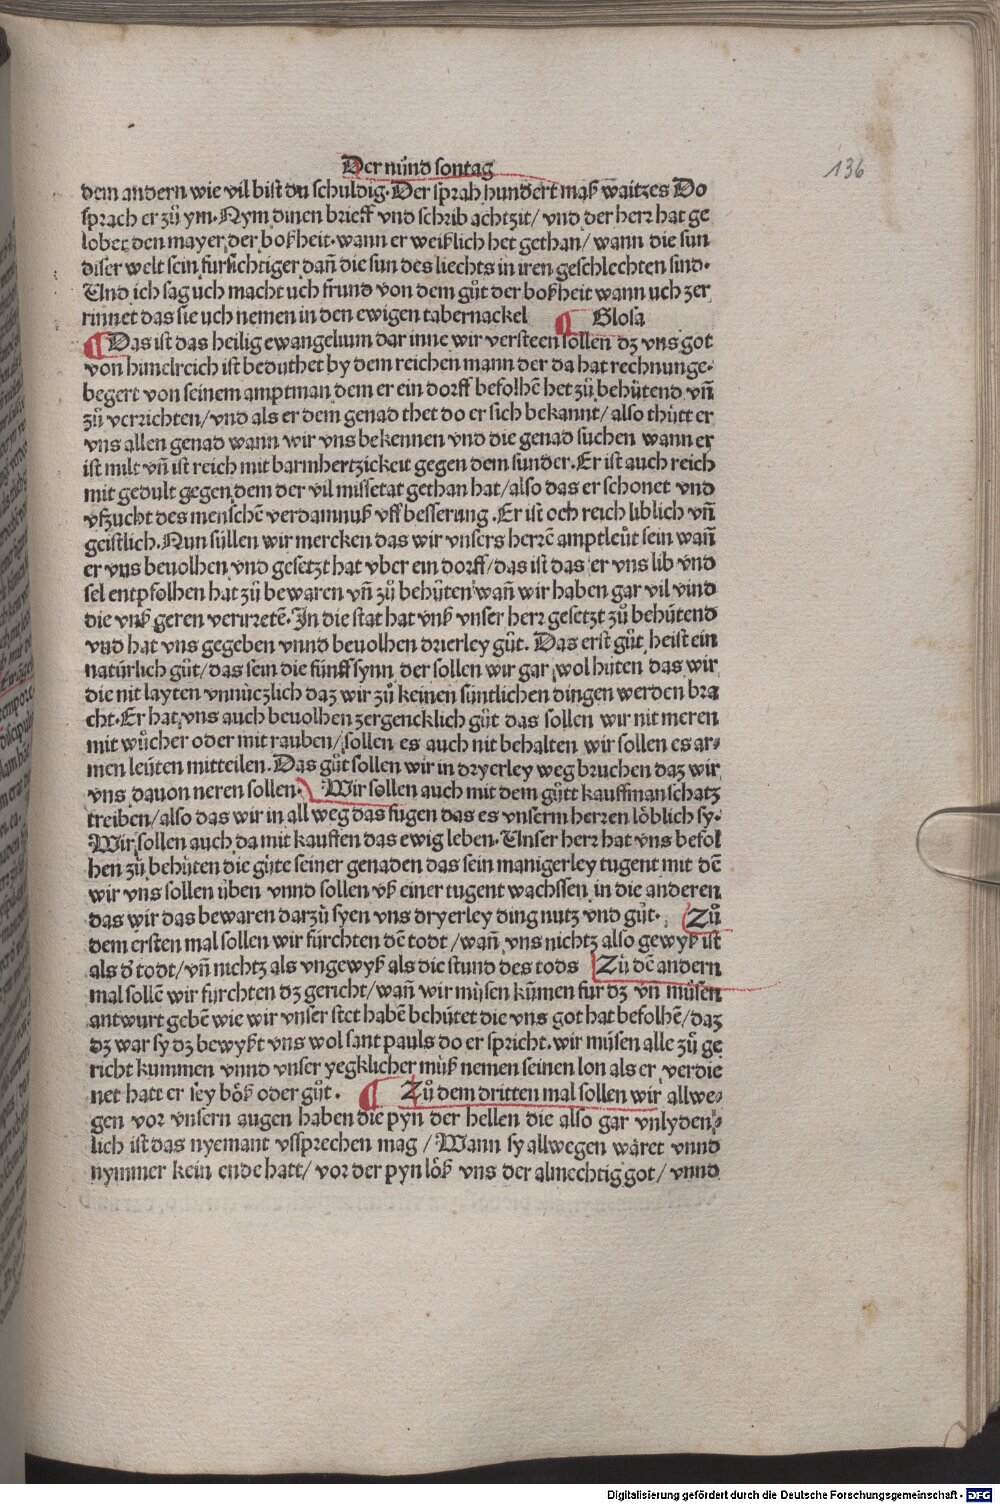 Der nünd sontag
136
dem andern wie vil bist du schuldig. Der sprah hundert maß waitzes Do
sprach er zů ym. Nym dinen brieff vnd schrib achtzit/ vnd der herr hat ge
lobet den mayer der boßheit. wann er weißlich het gethan/ wann die sun
diser welt sein fursichtiger dañ die sun des liechts in iren geschlechten sind.
Und ich sag uch macht uch frund von dem gůt der boßheit wann uch zer
rinnet das sie uch nemen in den ewigen tabernackel ¶ Glosa
¶ Das ist das heilig ewangelium dar inne wir versteen sollen dz vns got
von himelreich ist beduthet by dem reichen mann der da hat rechnunge-
begert von seinem amptman dem er ein dorff befolhē het zů behůtend vñ
zů verrichten/ vnd als er dem genad thet do er sich bekannt/ also thůtt er
vns allen genad wann wir vns bekennen vnd die genad suchen wann er
ist milt vñ ist reich mit barmhertzickeit gegen dem sunder. Er ist auch reich
mit gedult gegen dem der vil missetat gethan hat/ also das er schonet vnd
vfzucht des menschē verdamnuß vff besserung. Er ist och reich liblich vñ
geistlich. Nun süllen wir mercken das wir vnsers herrē amptleůt sein wañ
er vns beuolhen vnd gesetzt hat vber ein dorff/ das ist das er vns lib vnd
sel entpfolhen hat zů bewaren vñ zů behůten wañ wir haben gar vil vind
die vnß geren verirretē. In die stat hat vnß vnser herr gesetzt zů behůtend
vnd hat vns gegeben vnnd beuolhen drierley gůt. Das erst gůt heist ein
natürlich gůt/ das sein die fünff synn der sollen wir gar wol hüten das wir
die nit layten vnnůczlich daz wir zů keinen süntlichen dingen werden bra
cht. Er hat vns auch beuolhen zergencklich gůt das sollen wir nit meren
mit wůcher oder mit rauben/ sollen es auch nit behalten wir sollen es ar-
men leüten mitteilen. Das gůt sollen wir in dryerley weg bruchen daz wir
vns dauon neren sollen. Wir sollen auch mit dem gůtt kauffmanschatz
treiben/ also das wir in all weg das fugen das es vnserm herren löblich sy.
Wir sollen auch da mit kauffen das ewig leben. Unser herr hat vns befol
hen zů behüten die güte seiner genaden das sein manigerley tugent mit dē
wir vns sollen üben vnnd sollen vß einer tugent wachssen in die anderen
das wir das bewaren darzů syen vns dryerley ding nutz vnd gůt. Zů
dem ersten mal sollen wir fürchten dē todt/ wañ vns nichtz also gewyß ist
als d' todt/ vñ nichtz als vngewyß als die stund des tods Zů dē andern
mal sollē wir furchten dz gericht/ wañ wir můsen kům̄en fur dz vñ můsen
antwurt gebē wie wir vnser stet habē behůtet die vns got hat befolhē/ daz
dz war sy dz bewyßt vns wol sant pauls do er spricht. wir můsen alle zů ge
richt kummen vnnd vnser yegklicher můß nemen seinen lon als er verdie
net hatt er sey böß oder gůt. ¶ Zů dem dritten mal sollen wir allwe-
gen vor vnsern augen haben die pyn der hellen die also gar vnlyden-
lich ist das nyemant vssprechen mag/ Wann sy allwegen wäret vnnd
nymmer kein ende hatt/ vor der pyn löß vns der almechtig got/ vnnd
Digitalisierung gefördert durch die Deutsche Forschungsgemeinschaft - DFG